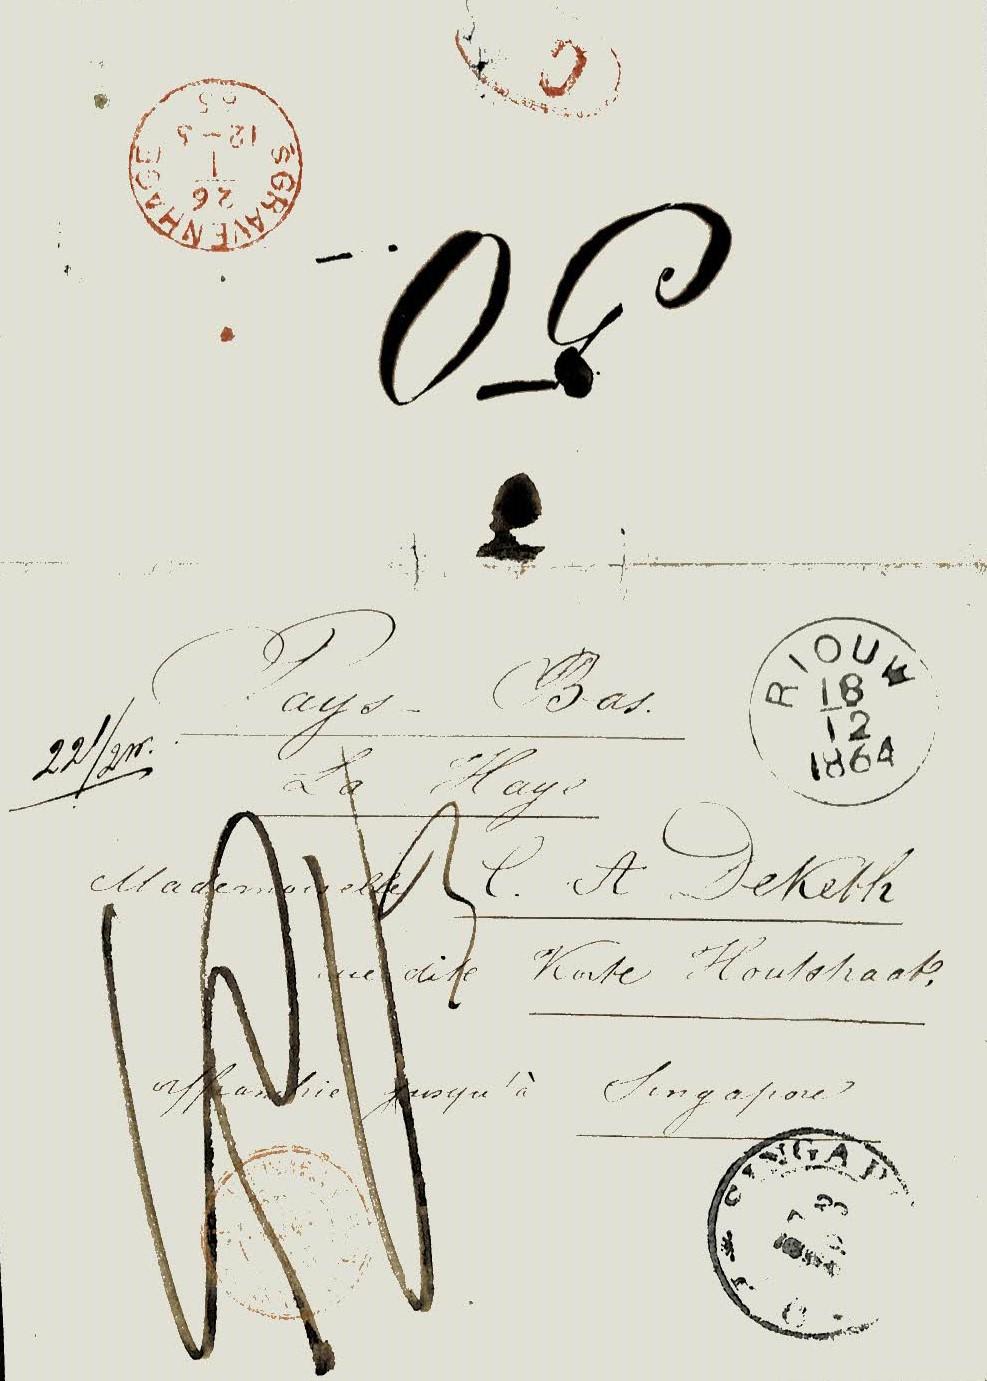 'SGRAVENHAGE
26
1
12-5
65
50
RIOUW
18
12
1864
Pays-Bas.
22 1/2
La Haye
Mademoiselle C. A Deketh
rue dite Korte Houtstraat,
affranchie jusqu'à Singapore